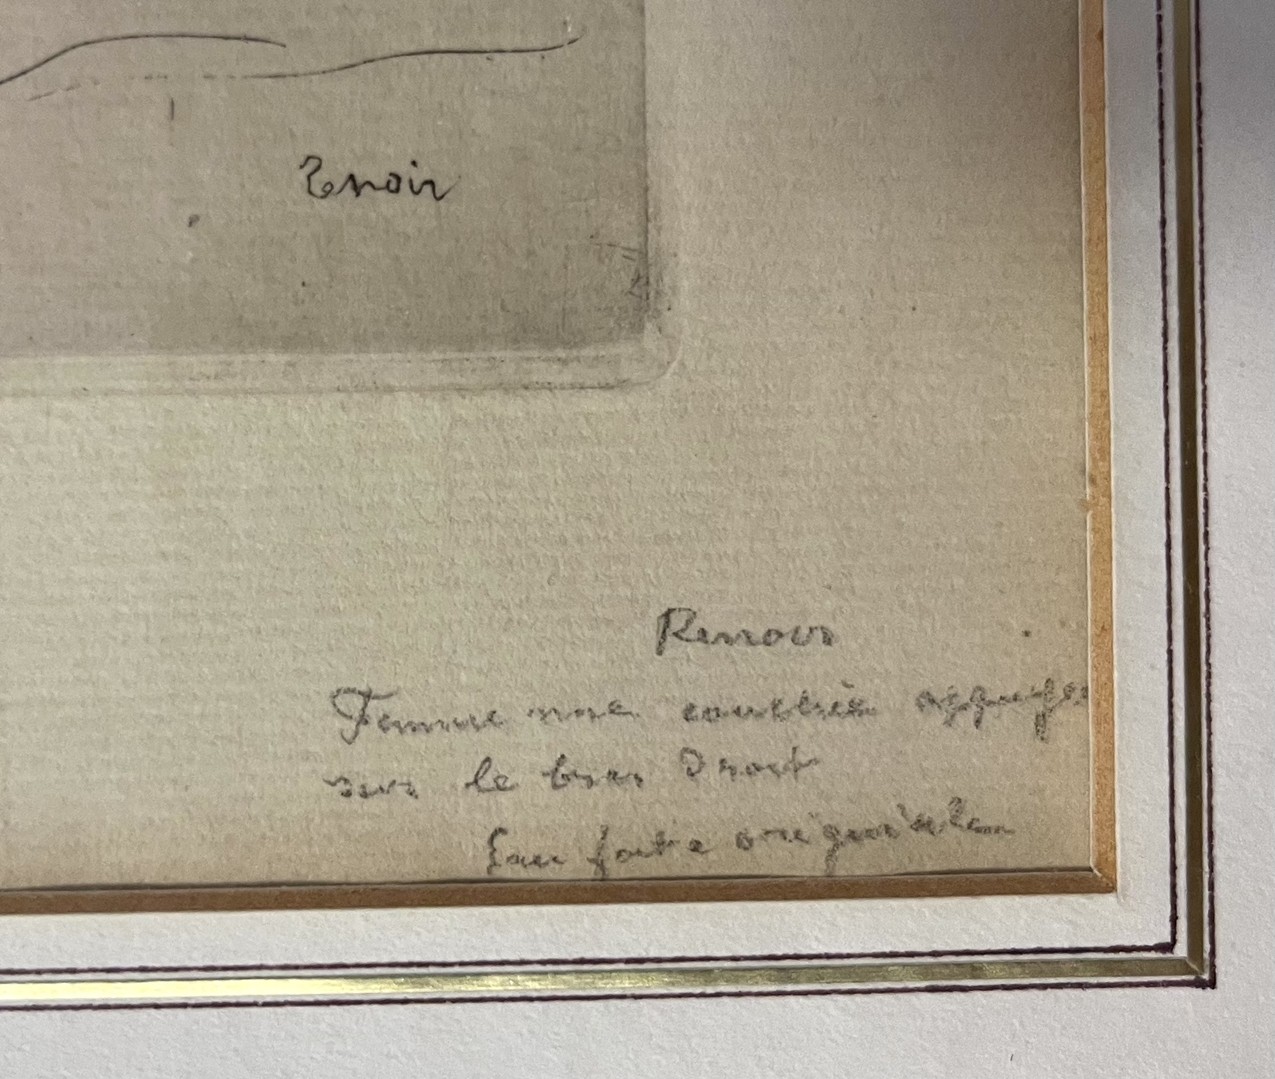 Renoir
Renoir
Femme nue couchée appuyée
sur le bras droit
Eau forte originale